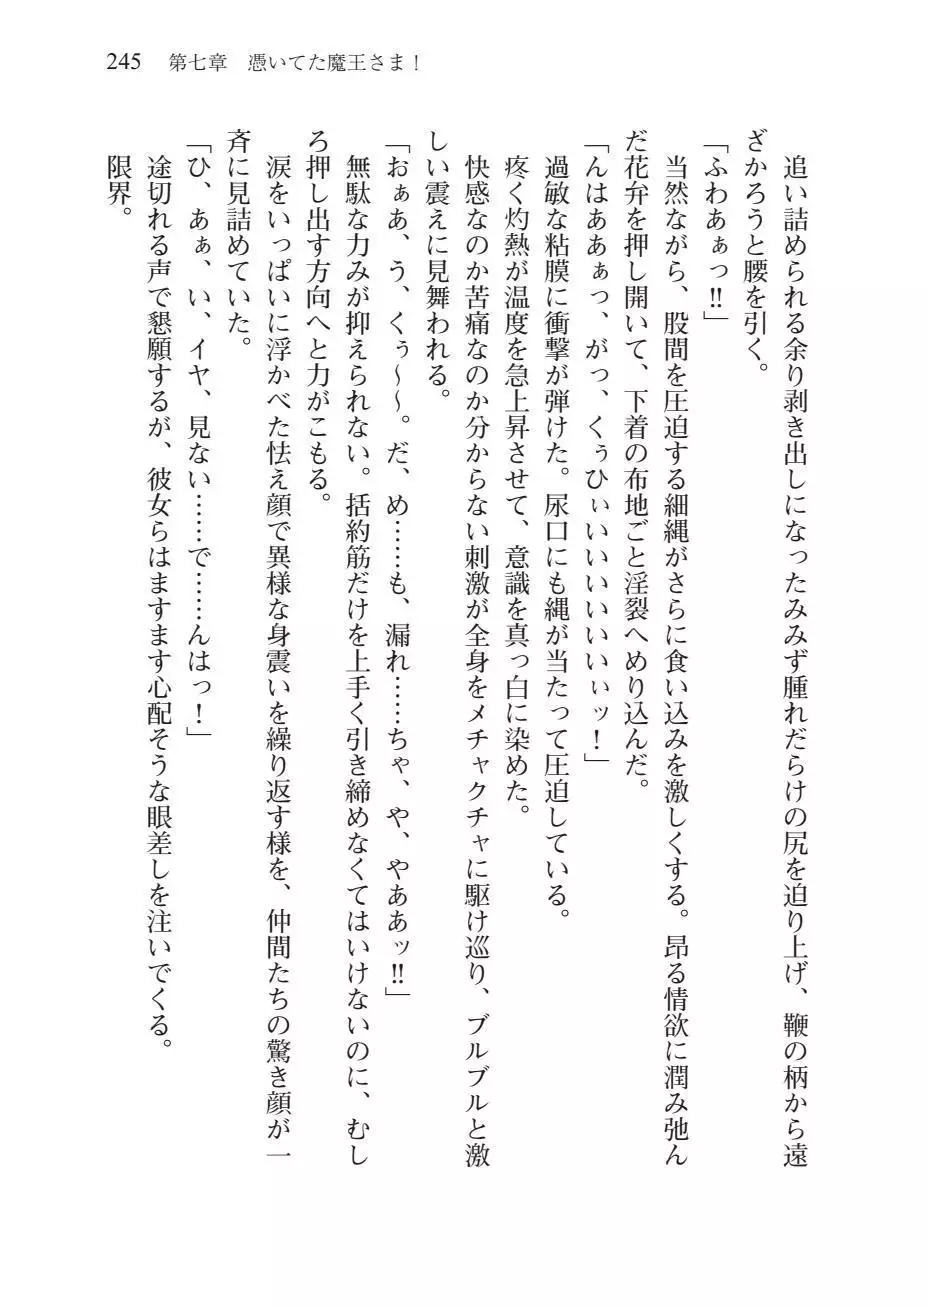 245　第七章　憑いてた魔王さま！
　追い詰められる余り剥き出しになったみみず腫れだらけの尻を迫り上げ、鞭の柄から遠
ざかろうと腰を引く。
「ふわあぁっ‼」
　当然ながら、股間を圧迫する細縄がさらに食い込みを激しくする。昂る情欲に潤み弛ん
だ花弁を押し開いて、下着の布地ごと淫裂へめり込んだ。
「んはああぁっ、がっ、くぅひぃいいいいいいぃッ！」
　過敏な粘膜に衝撃が弾けた。尿口にも縄が当たって圧迫している。
　疼く灼熱が温度を急上昇させて、意識を真っ白に染めた。
　快感なのか苦痛なのか分からない刺激が全身をメチャクチャに駆け巡り、ブルブルと激
しい震えに見舞われる。
「おぁあ、う、くぅ～～。だ、め……も、漏れ……ちゃ、や、やああッ‼」
　無駄な力みが抑えられない。括約筋だけを上手く引き締めなくてはいけないのに、むし
ろ押し出す方向へと力がこもる。
　涙をいっぱいに浮かべた怯え顔で異様な身震いを繰り返す様を、仲間たちの驚き顔が一
斉に見詰めていた。
「ひ、あぁ、い、イヤ、見ない……で……んはっ！」
　途切れる声で懇願するが、彼女らはますます心配そうな眼差しを注いでくる。
　限界。